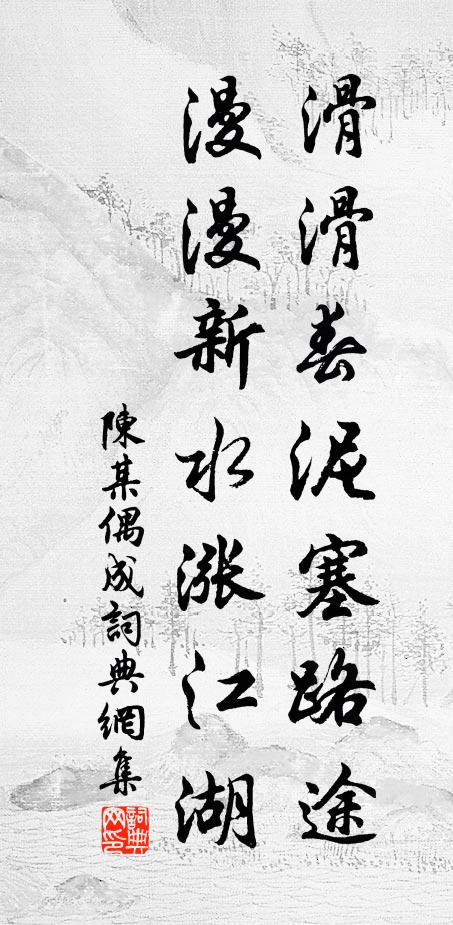 滑滑春泥塞路途
漫漫新水漲江湖
陳某偶成詞典網集
詞典网印